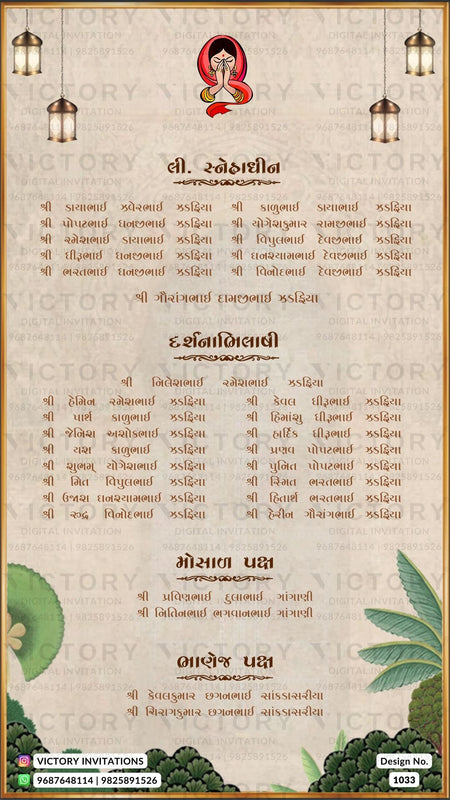 લી. સ્નેહાધીન
શ્રી ડાયાભાઈ ઝવેરભાઈ ઝડફિયા
શ્રી પોપટભાઈ ધનજીભાઈ ઝડફિયા
શ્રી રમેશભાઈ ડાયાભાઈ ઝડફિયા
શ્રી ધીરૂભાઈ ધનજીભાઈ ઝડફિયા
શ્રી ભરતભાઈ ધનજીભાઈ ઝડફિયા
શ્રી કાળુભાઈ ડાયાભાઈ ઝડફિયા
શ્રી યોગેશકુમાર રામજીભાઈ ઝડફિયા
શ્રી વિપુલભાઈ દેવજીભાઈ ઝડફિયા
શ્રી ઘનશ્યામભાઈ દેવજીભાઈ ઝડફિયા
શ્રી વિનોદભાઈ દેવજીભાઈ ઝડફિયા
શ્રી ગૌરાંગભાઈ દામજીભાઈ ઝડફિયા
દર્શનાભિલાષી
શ્રી મિલેશભાઈ રમેશભાઈ ઝડફિયા
શ્રી હેમિન રમેશભાઈ ઝડફિયા
શ્રી પાર્થ કાળુભાઈ ઝડફિયા
શ્રી જેનિશ અશોકભાઈ ઝડફિયા
શ્રી યશ કાળુભાઈ ઝડફિયા
શ્રી શુભમ્ યોગેશભાઈ ઝડફિયા
શ્રી મિત વિપુલભાઈ ઝડફિયા
શ્રી ઉજાશ ઘનશ્યામભાઈ ઝડફિયા
શ્રી રૂદ્ર વિનોદભાઈ ઝડફિયા
શ્રી કેવલ ધીરૂભાઈ ઝડફિયા
શ્રી હિમાંશુ ધીરૂભાઈ ઝડફિયા
શ્રી હાર્દિક ધીરૂભાઈ ઝડફિયા
શ્રી પ્રણવ પોપટભાઈ ઝડફિયા
શ્રી પુનિત પોપટભાઈ ઝડફિયા
શ્રી સ્મિત ભરતભાઈ ઝડફિયા
શ્રી હિતાર્થ ભરતભાઈ ઝડફિયા
શ્રી હેરીન ગૌરાંગભાઈ ઝડફિયા
મોસાળ પક્ષ
શ્રી પ્રવિણભાઈ દુલાભાઈ ગાંગાણી
શ્રી નિતિનભાઈ ભગવાનભાઈ ગાંગાણી
ભાણેજ પક્ષ
શ્રી કેવલકુમાર છગનભાઈ સાંકડાસરીયા
શ્રી ચિરાગકુમાર છગનભાઈ સાંકડાસરીયા
VICTORY INVITATIONS
9687648114 | 9825891526
Design No.
1033